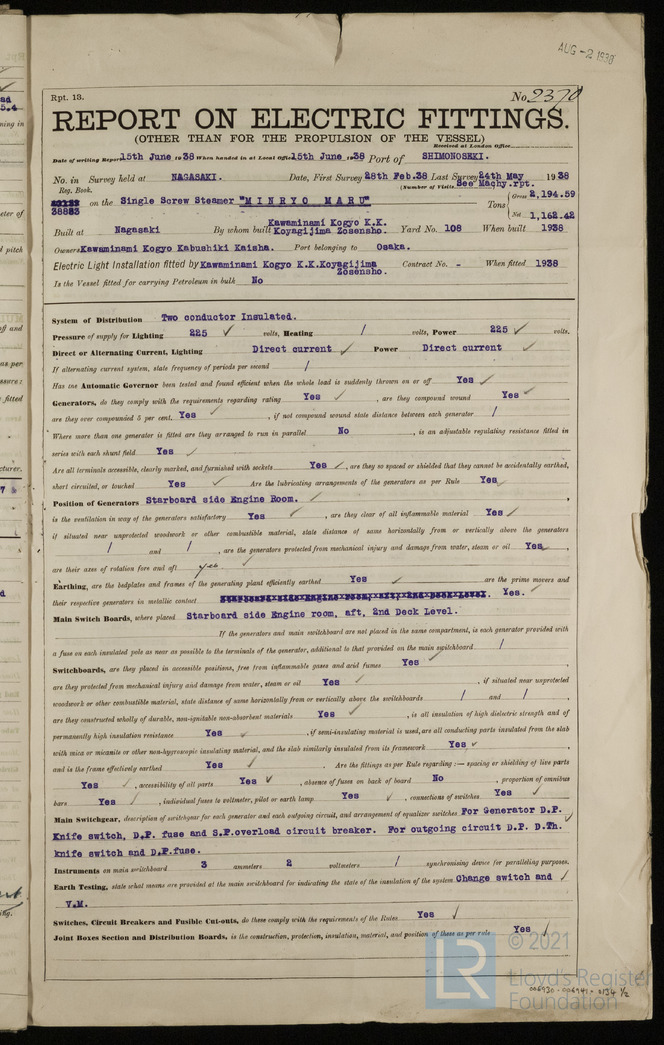 AUG -2 1938
Rpt. 13.
No. 2370
REPORT ON ELECTRIC FITTINGS.
(OTHER THAN FOR THE PROPULSION OF THE VESSEL)
Received at London Office
Date of writing Report 15th June 1938 When handed in at Local Office 15th June 1938 Port of SHIMONOSEKI.
No. in Survey held at NAGASAKI. Date, First Survey 28th Feb.38 Last Survey 24th May 1938
Reg. Book. (Number of Visits See Machy.rpt.
38883 on the Single Screw Steamer "MINRYO MARU" Tons { Gross 2,194.59
Net 1,162.42
Built at Nagasaki By whom built Kawaminami Kogyo K.K. Koyagijima Zosensho. Yard No. 108 When built 1938
Owners Kawaminami Kogyo Kabushiki Kaisha. Port belonging to Osaka.
Electric Light Installation fitted by Kawaminami Kogyo K.K.Koyagijima Zosensho. Contract No. - When fitted 1938
Is the Vessel fitted for carrying Petroleum in bulk No
System of Distribution Two conductor Insulated.
Pressure of supply for Lighting 225 ✓ volts, Heating / volts, Power 225 ✓ volts.
Direct or Alternating Current, Lighting Direct current ✓ Power Direct current ✓
If alternating current system, state frequency of periods per second /
Has the Automatic Governor been tested and found efficient when the whole load is suddenly thrown on or off Yes ✓
Generators, do they comply with the requirements regarding rating Yes ✓, are they compound wound Yes ✓
are they over compounded 5 per cent. Yes ✓, if not compound wound state distance between each generator /
Where more than one generator is fitted are they arranged to run in parallel No, is an adjustable regulating resistance fitted in
series with each shunt field Yes ✓
Are all terminals accessible, clearly marked, and furnished with sockets Yes ✓, are they so spaced or shielded that they cannot be accidentally earthed,
short circuited, or touched Yes ✓ Are the lubricating arrangements of the generators as per Rule Yes
Position of Generators Starboard side Engine Room. ✓
is the ventilation in way of the generators satisfactory Yes ✓, are they clear of all inflammable material Yes ✓
if situated near unprotected woodwork or other combustible material, state distance of same horizontally from or vertically above the generators
/ and /, are the generators protected from mechanical injury and damage from water, steam or oil Yes
are their axes of rotation fore and aft yes ✓
Earthing, are the bedplates and frames of the generating plant efficiently earthed Yes ✓ are the prime movers and
their respective generators in metallic contact Starboard side Engine room, aft, 2nd Deck Level. Yes.
Main Switch Boards, where placed Starboard side Engine room, aft, 2nd Deck Level.
If the generators and main switchboard are not placed in the same compartment, is each generator provided with
a fuse on each insulated pole as near as possible to the terminals of the generator, additional to that provided on the main switchboard /
Switchboards, are they placed in accessible positions, free from inflammable gases and acid fumes Yes ✓
are they protected from mechanical injury and damage from water, steam or oil Yes ✓, if situated near unprotected
woodwork or other combustible material, state distance of same horizontally from or vertically above the switchboards / and /
are they constructed wholly of durable, non-ignitable non-absorbent materials Yes ✓, is all insulation of high dielectric strength and of
permanently high insulation resistance Yes ✓, if semi-insulating material is used, are all conducting parts insulated from the slab
with mica or micanite or other non-hygroscopic insulating material, and the slab similarly insulated from its framework Yes ✓
and is the frame effectively earthed Yes ✓. Are the fittings as per Rule regarding :— spacing or shielding of live parts
Yes ✓, accessibility of all parts Yes ✓, absence of fuses on back of board No, proportion of omnibus
bars Yes ✓, individual fuses to voltmeter, pilot or earth lamp Yes ✓, connections of switches Yes ✓
Main Switchgear, description of switchgear for each generator and each outgoing circuit, and arrangement of equalizer switches For Generator D.P. ✓
Knife switch, D.P. fuse and S.P.overload circuit breaker. For outgoing circuit D.P. D.Th.
knife switch and D.P.fuse.
Instruments on main switchboard 3 ammeters 2 voltmeters / synchronising device for paralleling purposes.
Earth Testing, state what means are provided at the main switchboard for indicating the state of the insulation of the system Change switch and ✓
V.M.
Switches, Circuit Breakers and Fusible Cut-outs, do these comply with the requirements of the Rules Yes ✓
Joint Boxes Section and Distribution Boards, is the construction, protection, insulation, material, and position of these as per rule Yes ✓
LR © 2021
Lloyd's Register
Foundation
006930 - 006941 - 0134 ½